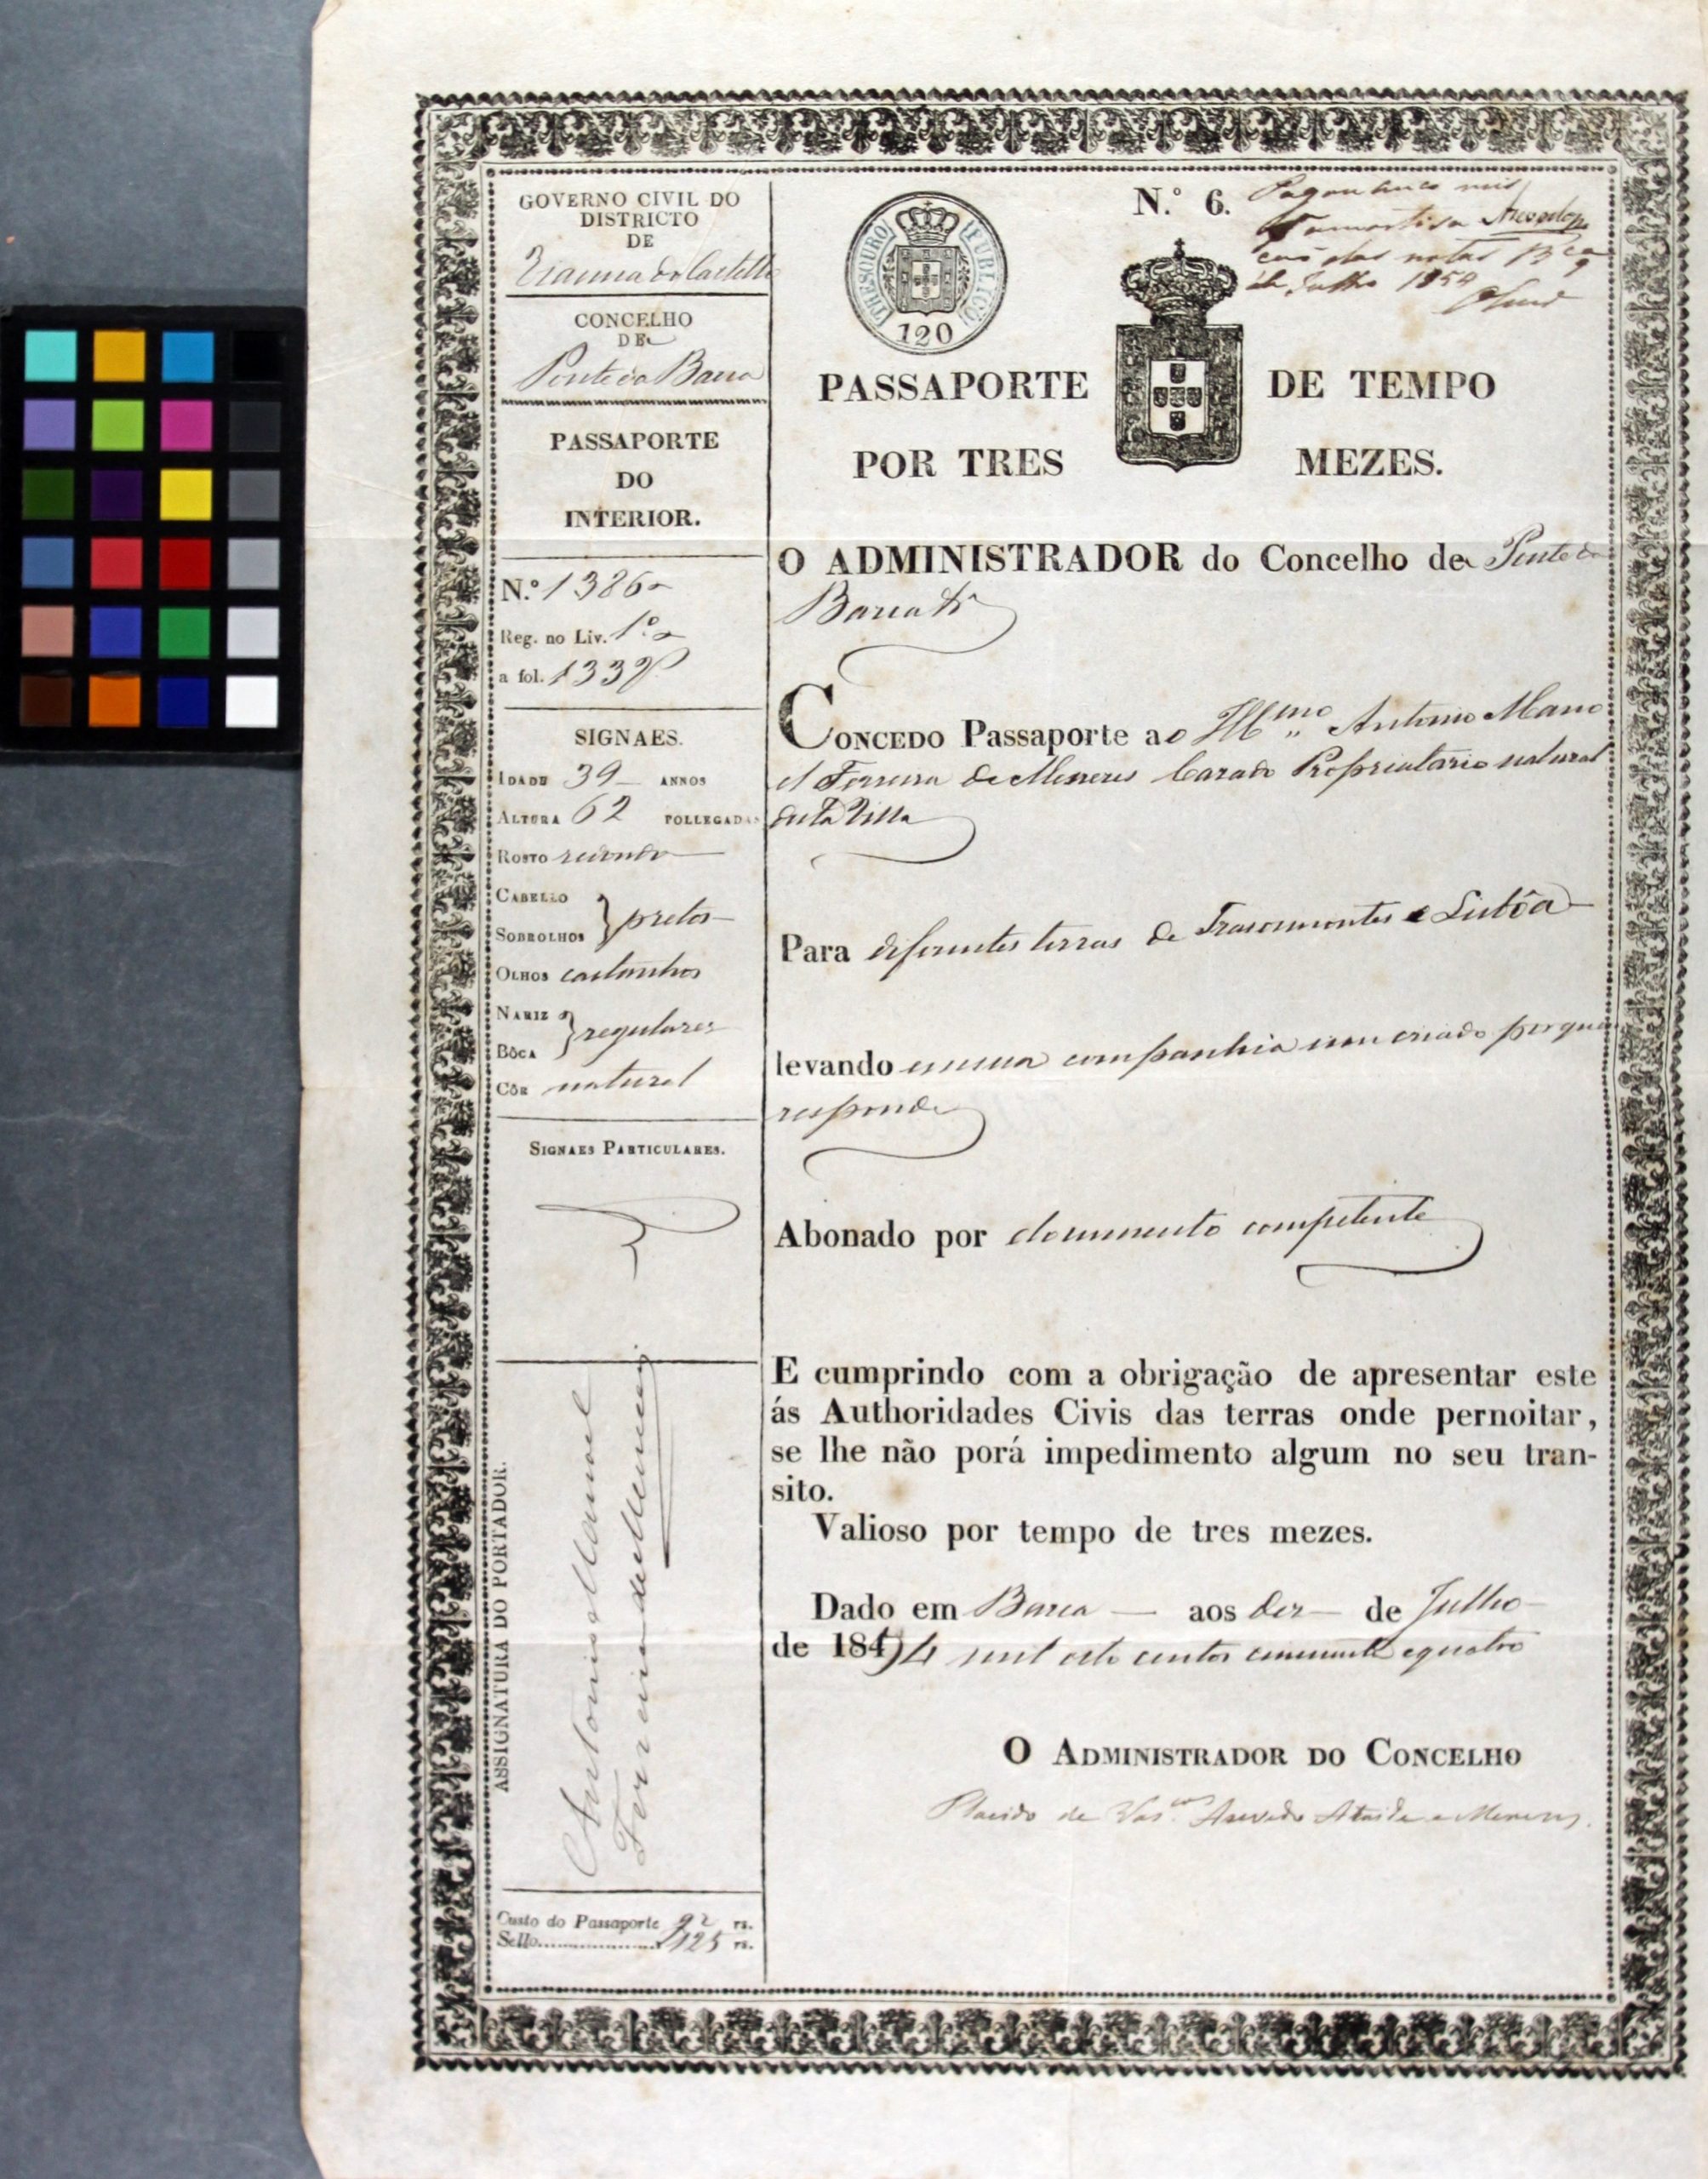 GOVERNO CIVIL DO
DISTRICTO
DE
Vianna do Castello
CONCELHO
DE
Ponte da Barca
PASSAPORTE
DO
INTERIOR.
N.º 1386
Reg. no Liv. 1º
a fol. 133
SIGNAES.
IDADE 39 ANNOS
ALTURA 62 POLLEGADAS
ROSTO redondo
CABELLO
SOBROLHOS } pretos
OLHOS castanhos
NARIZ
BÔCA } regulares
CÔR natural
SIGNAES PARTICULARES.
ASSIGNATURA DO PORTADOR.
Antonio Manoel
Ferreira de Menezes
Custo do Passaporte 92 rs.
Sello 125 rs.
THESOURO PUBLICO
120
N.º 6.
Pagou cinco reis
das notas Bca
de Julho 1854
PASSAPORTE DE TEMPO
POR TRES MEZES.
O ADMINISTRADOR do Concelho de Ponte da
Barca
CONCEDO Passaporte ao Illmo Antonio Mano
el Ferreira de Menezes Cazado Proprietario natural
desta Villa
Para diferentes terras de Trasosmontes e Lisbôa
levando em sua companhia um criado por quem
responde
Abonado por documento competente
E cumprindo com a obrigação de apresentar este
ás Authoridades Civis das terras onde pernoitar,
se lhe não porá impedimento algum no seu tran-
sito.
Valioso por tempo de tres mezes.
Dado em Barca aos dez de Julho
de 1854 mil oito centos cincoenta e quatro
O ADMINISTRADOR DO CONCELHO
Placido de Vas.cos Azevedo Ataide e Menezes